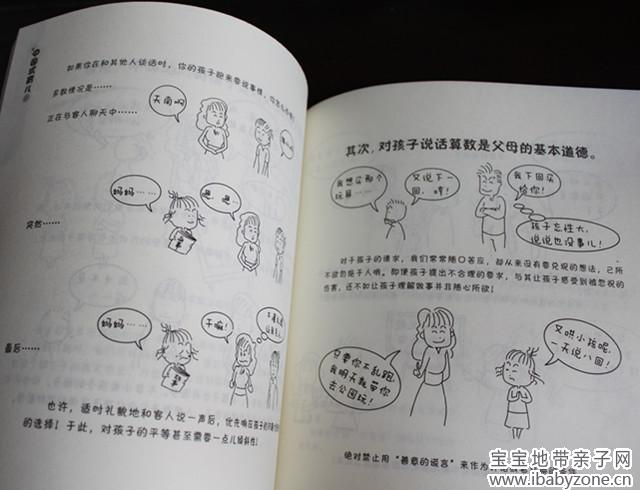 中国式育儿
如果你在和其他人谈话时，你的孩子跑来要说事情，你怎么
多数情况是……
天南啊
正在与客人聊天中……
妈妈……
突然……
妈妈……
干嘛！
最后……
也许，适时礼貌地和客人说一声后，优先响应孩子的
的选择！于此，对孩子的平等甚至需要一点儿倾斜性！
其次，对孩子说话算数是父母的基本道德。
我想买那个
玩具……
又说下一
回，哼！
我下回买
给你！
孩子忘性大，
说说也没事儿！
对于孩子的请求，我们常常随口答应，却从来没有要兑现的想法，己所
不欲勿施于人哟。即使孩子提出不合理的要求，与其让孩子感受到被忽视的
伤害，还不如让孩子理解做事并非随心所欲！
只要你不乱跑，
我明天就带你
去公园玩！
又哄小孩呢，
一天说八回！
绝对禁止用“善意的谎言”来作为
宝宝地带亲子网
www.ibabyzone.cn